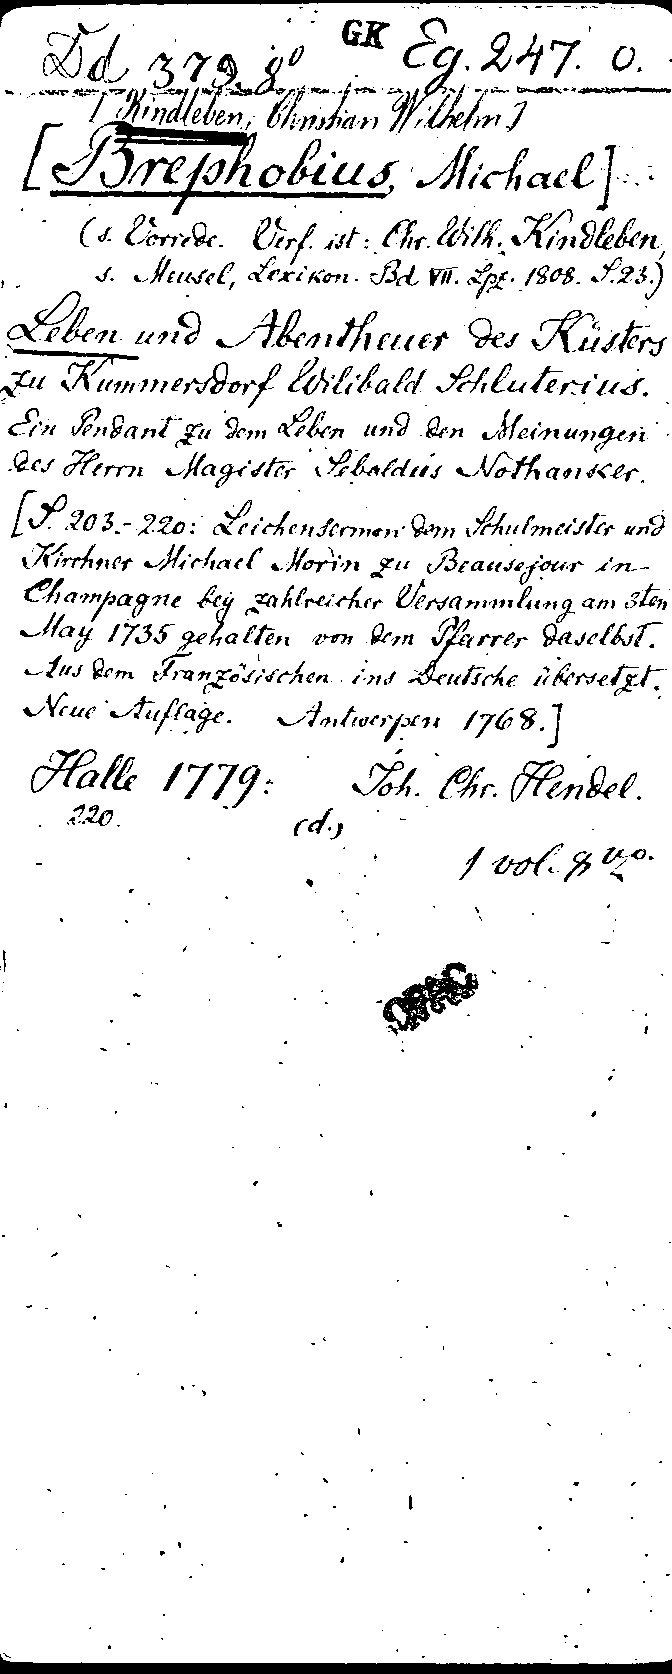 Dd 379 8° GK Eg. 247. o.
[Kindleben, Christian Wilhelm]
[Brephobius, Michael]
(s. Vorrede. Verf. ist: Chr. Wilh. Kindleben,
s. Meusel, Lexikon. Bd VII. Lpz. 1808. S. 23.)
Leben und Abentheuer des Küsters
zu Kummersdorf Wilibald Schluterius.
Ein Pendant zu dem Leben und den Meinungen
des Herrn Magister Sebaldus Nothanker.
[S. 203.-220: Leichensermon dem Schulmeister und
Kirchner Michael Morin zu Beausejour in
Champagne bey zahlreicher Versammlung am 3ten
May 1735 gehalten von dem Pfarrer daselbst.
Aus dem Französischen ins Deutsche übersetzt.
Neue Auflage. Antwerpen 1768.]
Halle 1779: Joh. Chr. Hendel.
220. (d.)
1 vol. 8vo.
OPAC